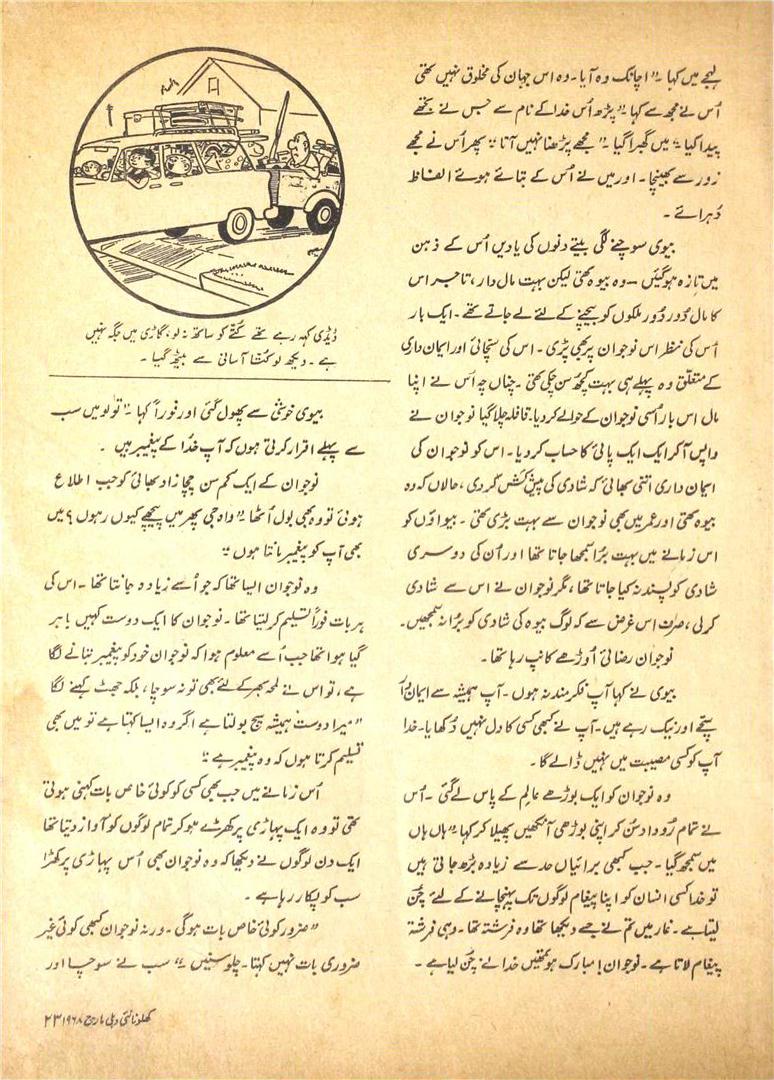 لہجے میں کہا۔" اچانک وہ آیا۔ وہ اس جہان کی مخلوق نہیں تھی
اُس نے مجھ سے کہا۔" پڑھ اُس خدا کے نام سے جس نے تجھے
پیدا کیا۔" میں گھبرا گیا۔" مجھے پڑھنا نہیں آتا۔" پھر اُس نے مجھے
زور سے بھینچا۔ اور میں نے اُس کے بتائے ہوئے الفاظ
دُہرائے۔
بیوی سوچنے لگی بیتے دنوں کی یادیں اُس کے ذہن
میں تازہ ہوگئیں — وہ بیوہ تھی لیکن بہت مال دار، تاجر اس
کا مال دُور دُور ملکوں کو بیچنے کے لئے لے جاتے تھے۔ ایک بار
اُس کی نظر اس نوجوان پر بھی پڑی۔ اس کی سچائی اور ایمان داری
کے متعلق وہ پہلے ہی بہت کچھ سن چکی تھی۔ چناں چہ اُس نے اپنا
مال اس بار اُسی نوجوان کے حوالے کردیا۔ قافلہ چلا گیا نوجوان نے
واپس آکر ایک ایک پائی کا حساب کردیا۔ اس کو نوجوان کی
ایمان داری اتنی بھائی کہ شادی کی پیش کش کردی، حالاں کہ وہ
بیوہ تھی اور عمر میں بھی نوجوان سے بہت بڑی تھی۔ بیواؤں کو
اس زمانے میں بہت بُرا سمجھا جاتا تھا اور اُن کی دوسری
شادی کو پسند نہ کیا جاتا تھا، مگر نوجوان نے اس سے شادی
کرلی، صرف اس غرض سے کہ لوگ بیوہ کی شادی کو بُرا نہ سمجھیں۔
نوجوان رضائی اُوڑھے کانپ رہا تھا۔
بیوی نے کہا آپ فکر مند نہ ہوں۔ آپ ہمیشہ سے ایمان دار
سچے اور نیک رہے ہیں۔ آپ نے کبھی کسی کا دل نہیں دُکھایا۔ خدا
آپ کو کسی مصیبت میں نہیں ڈالے گا۔
وہ نوجوان کو ایک بوڑھے عالِم کے پاس لے گئی۔ اُس
نے تمام رُوداد سُن کر اپنی بوڑھی آنکھیں پھیلا کر کہا۔" ہاں ہاں
میں سمجھ گیا۔ جب کبھی برائیاں حد سے زیادہ بڑھ جاتی ہیں
تو خدا کسی انسان کو اپنا پیغام لوگوں تک پہنچانے کے لئے چُن
لیتا ہے۔ غار میں تم نے جسے دیکھا تھا وہ فرشتہ تھا۔ وہی فرشتہ
پیغام لاتا ہے۔ نوجوان! مبارک ہو تمھیں خدا نے چُن لیا ہے۔
ڈیڈی کہہ رہے تھے کُتّے کو ساتھ نہ لو، گاڑی میں جگہ نہیں
ہے۔ دیکھ لو کُتّا آسانی سے بیٹھ گیا۔
بیوی خوشی سے پھول گئی اور فوراً کہا۔" تو لو میں سب
سے پہلے اقرار کرتی ہوں کہ آپ خُدا کے پیغمبر ہیں۔
نوجوان کے ایک کم سن چچا زاد بھائی کو جب اطلاع
ہوئی تو وہ بھی بول اُٹھا۔" واہ جی پھر میں پیچھے کیوں رہوں؟ میں
بھی آپ کو پیغمبر مانتا ہوں۔"
وہ نوجوان ایسا تھا کہ جو اُسے زیادہ جانتا تھا۔ اس کی
ہر بات فوراً تسلیم کرلیتا تھا۔ نوجوان کا ایک دوست کہیں باہر
گیا ہوا تھا جب اُسے معلوم ہوا کہ نوجوان خود کو پیغمبر بتانے لگا
ہے، تو اس نے لمحہ بھر کے لئے بھی تو نہ سوچا، بلکہ جھٹ کہنے لگا
"میرا دوست ہمیشہ سچ بولتا ہے اگر وہ ایسا کہتا ہے تو میں بھی
تسلیم کرتا ہوں کہ وہ پیغمبر ہے۔"
اُس زمانے میں جب بھی کسی کو کوئی خاص بات کہنی ہوتی
تھی تو وہ ایک پہاڑی پر کھڑے ہوکر تمام لوگوں کو آواز دیتا تھا
ایک دن لوگوں نے دیکھا کہ وہ نوجوان بھی اُس پہاڑی پر کھڑا
سب کو پکار رہا ہے۔
"ضرور کوئی خاص بات ہوگی۔ ورنہ نوجوان کبھی کوئی غیر
ضروری بات نہیں کہتا۔ چلو سنیں۔" سب نے سوچا اور
کھلونا نئی دہلی مارچ ۱۹۶۸ ۲۳